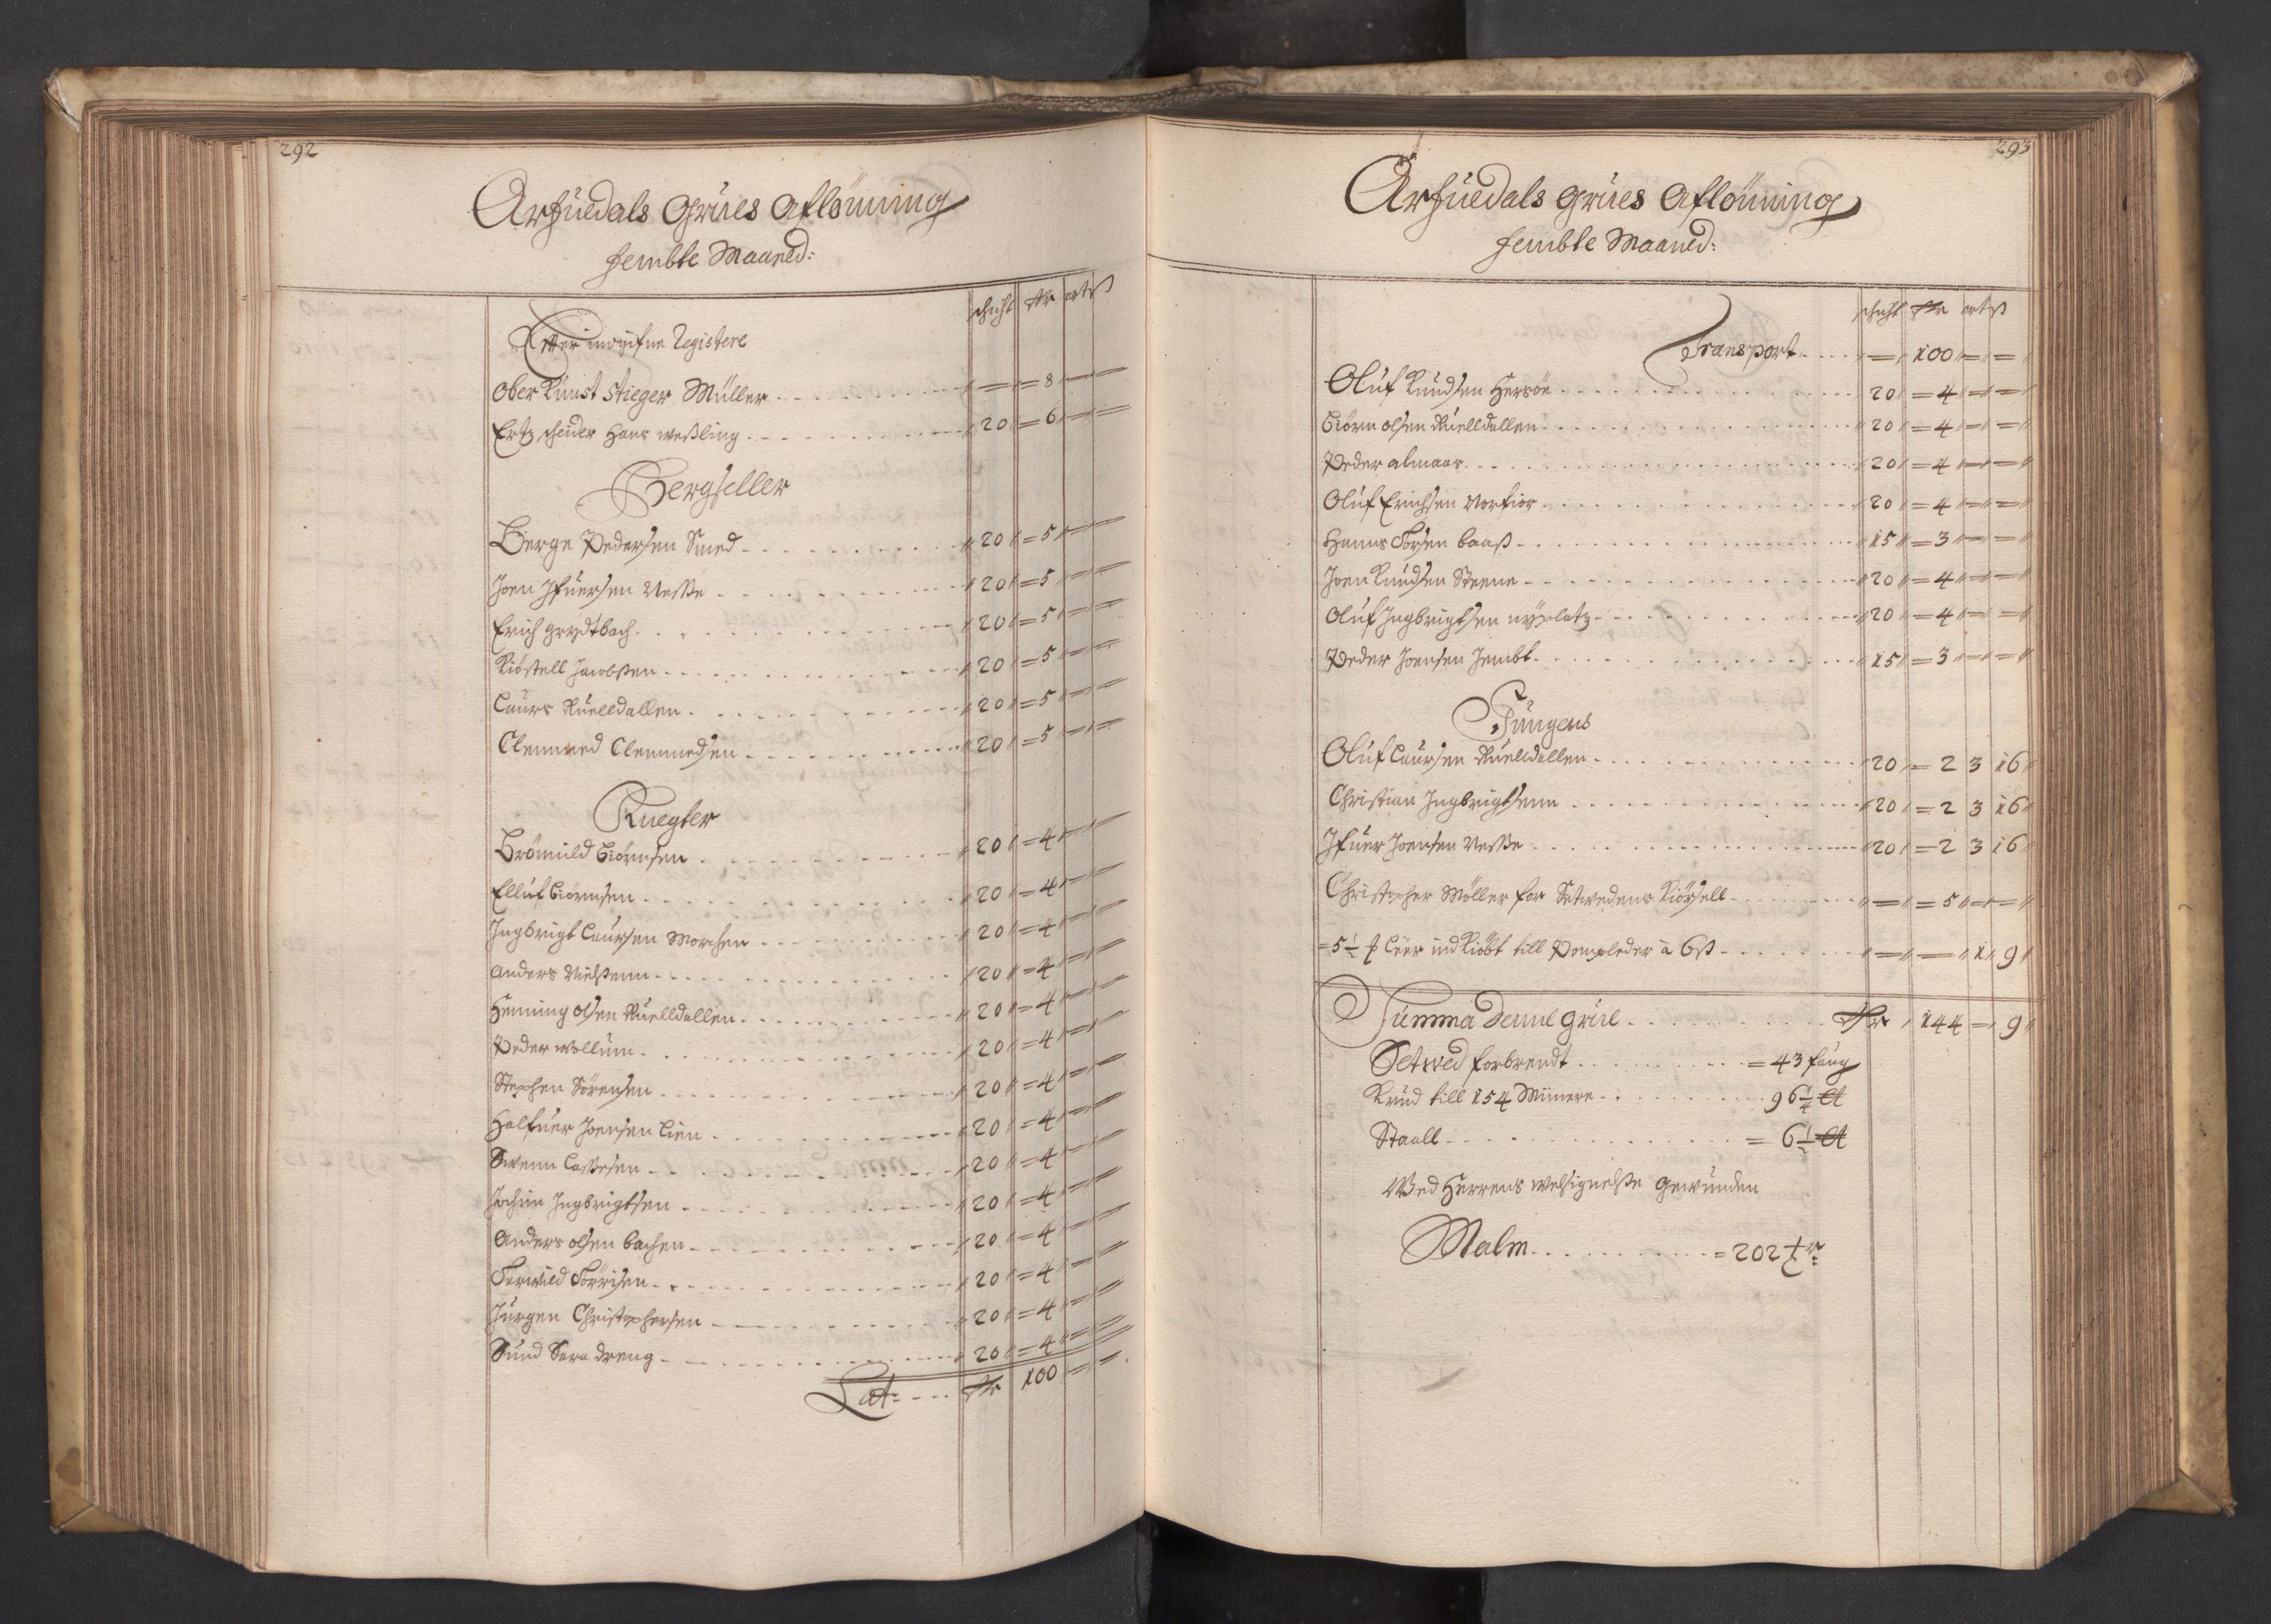 292
Arfuedals Grues Aflönning
fembte Maaned:
schicht Rdr ort ß
Efter indgifne Registere
Ober Kunst Stieger Müller - - - = = 8 = =
Ertz scheider Hans weßling - - - 20 = 6 = =
Bergseller
Börge Pedersen Smed - - - 20 = 5 = =
Joen Ifuersen Veße - - - 20 = 5 = =
Erich grydtbach - - - 20 = 5 = =
Kiöstell Jacobsen - - - 20 = 5 = =
Laurs Kuelldallen - - - 20 = 5 = =
Clemmed Clemmedsen - - - 20 = 5 = =
Knegter
Brömild Biörnsen - - - 20 = 4 = =
Elluf Biörnsen - - - 20 = 4 = =
Ingbrigt Laursen Morchen - - - 20 = 4 = =
Anders Nielsenn - - - 20 = 4 = =
Henning olsen Kuelldallen - - - 20 = 4 = =
Peder wollum - - - 20 = 4 = =
Stephen Sörensen - - - 20 = 4 = =
Halfuer Joensen Lien - - - 20 = 4 = =
Swenn Laßesen - - - 20 = 4 = =
Jochim Ingbrigtsen - - - 20 = 4 = =
Anders olsen bachen - - - 20 = 4 = =
Torwild Torrisen - - - 20 = 4 = =
Jürgen Christophersen - - - 20 = 4 = =
Sund Sara dreng - - - 20 = 4 = =
Lat: - - - Rdr 100 = =
293
Arfuedals Grues Aflönning
fembte Maaned:
schicht Rdr ort ß
Transport - - - = 100 = =
Oluf Knudsen Hersöe - - - 20 = 4 = =
Biörn olsen Kuelldallen - - - 20 = 4 = =
Peder almaas - - - 20 = 4 = =
Oluf Erichsen Norfior - - - 20 = 4 = =
Hanns Torsen baaß - - - 15 = 3 = =
Joen Knudsen Steene - - - 20 = 4 = =
Oluf Ingbrigtsen nyplatz - - - 20 = 4 = =
Peder Joensen Jembt - - - 15 = 3 = =
Jungens
Oluf Laursen Kuelldallen - - - 20 = 2 3 16
Christian Ingbrigtsenn - - - 20 = 2 3 16
Ifuer Joensen Veße - - - 20 = 2 3 16
Christopher Möller for Setwedens Kiörsell - - - = = 5 = =
= 5 1/2 ℔ Leer ind Kiöbt till Pompleder à 6 ß - - - = = 1 9
Summa denne Grue - - - Rdr 144 = 9
Setwed forbrendt - - - = 43 faug
Krud till 154 Minnere - - - 96 1/4 ℔
Staall - - - = 6 1/2 ℔
Wed Herrens welsignelße gewunden
Malm - - - = 202 tr: